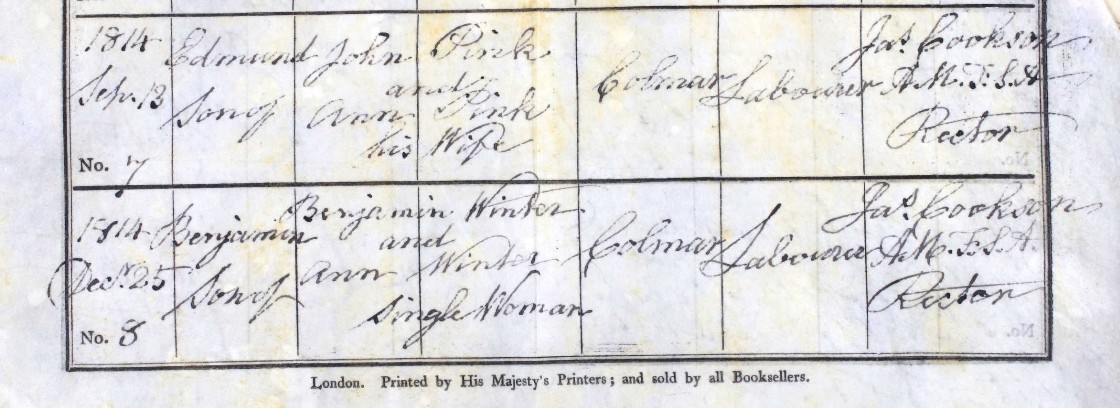 1814 Edmund John Pink Jas Cookson
and
Sepr. 13 Son of Ann Pink Colmar Labourer A.M. F.S.A
his Wife Rector
No. 7
Benjamin Winter Jas Cookson
1814 Benjamin and Colmar Labourer A.M. F.S.A.
Decr. 25 Son of Ann Winter Rector
Single Woman
No. 8
London. Printed by His Majesty's Printers; and sold by all Booksellers.